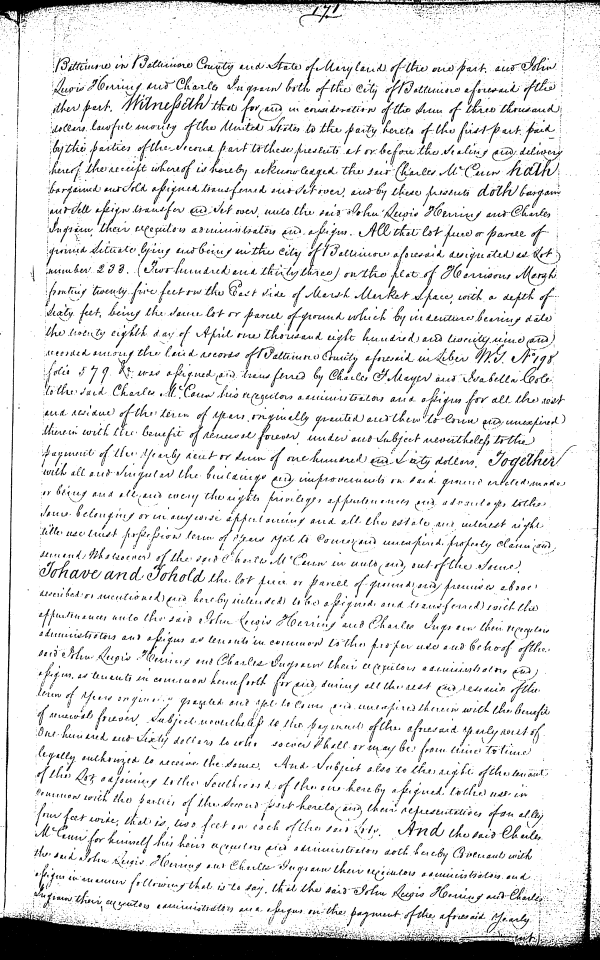 171
Baltimore in Baltimore County and State of Maryland of the one part, and John
Lewis Herring and Charles Ingram both of the city of Baltimore aforesaid of the
other part. Witnesseth that for and in consideration of the sum of three thousand
dollars lawful money of the United States to the party hereto of the first part paid
by the parties of the second part to these presents at or before the sealing and delivery
hereof the receipt whereof is hereby acknowledged the said Charles McCann hath
bargained and sold assigned transferred and set over, and by these presents doth bargain
and sell assign transfer and set over, unto the said John Lewis Herring and Charles
Ingram, their executors administrators and assigns. All that lot piece or parcel of
ground situate lying and being in the city of Baltimore aforesaid designated as Lot
number 233. (Two hundred and thirty three) on the plat of Harrisons Marsh
fronting twenty five feet on the East side of Marsh Market Space, with a depth of
sixty feet, being the same lot or parcel of ground which by indenture bearing date
the twenty eighth day of April one thousand eight hundred and twenty nine and
recorded among the land records of Baltimore County aforesaid in Liber W.G. No 198
folio 579 &c was assigned and transferred by Charles F Mayer and Isabella Cole
to the said Charles McCann his executors administrators and assigns for all the rest
and residue of the term of years originally granted and then to come and unexpired
therein with the benefit of renewal forever under and subject nevertheless to the
payment of the yearly rent or sum of one hundred and sixty dollars. Together
with all and singular the buildings and improvements on said ground erected made
or being and all and every the rights privileges appurtenances and advantages to the
same belonging or in anywise appertaining and all the estate and interest right
title use trust possession term of years yet to come and unexpired, property claim and
demand whatsoever of the said Charles McCann in unto and out of the same.
To have and To hold the lot piece or parcel of ground and premises above
described or mentioned and hereby intended to be assigned and transferred with the
appurtenances unto the said John Lewis Herring and Charles Ingram their executors
administrators and assigns as tenants in common to the proper use and behoof of the
said John Lewis Herring and Charles Ingram their executors administrators and
assigns as tenants in common henceforth for and during all the rest and residue of the
term of years originally granted and yet to come and unexpired therein with the benefit
of renewals forever, Subject nevertheless to the payment of the aforesaid yearly rent of
One hundred and sixty dollars to whom soever shall or may be from time to time
legally authorized to receive the same. And Subject also to the right of the tenant
of the Lot adjoining to the Southward of the one hereby assigned to the use in
common with the parties of the second part hereto, and their representatives of an alley
four feet wide, that is, two feet on each of the said Lots. And the said Charles
McCann for himself his heirs executors and administrators doth hereby Covenant with
the said John Lewis Herring and Charles Ingram their executors administrators and
assigns in manner following that is to say, that the said John Lewis Herring and Charles
Ingram their executors administrators and assigns on the payment of the aforesaid yearly